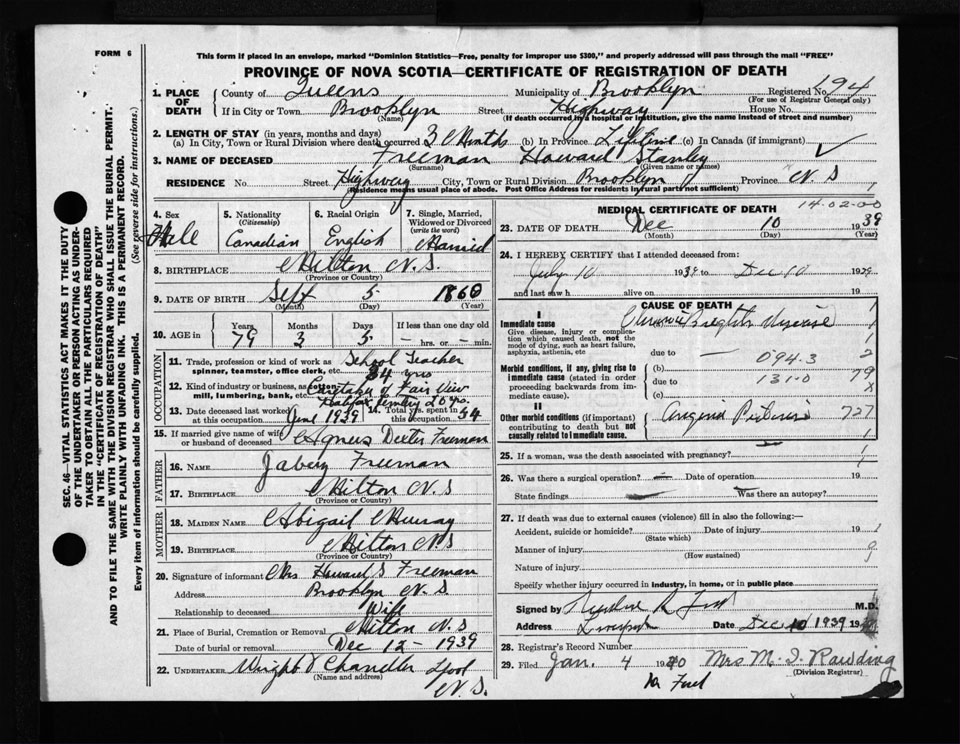 FORM 6
This form if placed in an envelope, marked "Dominion Statistics—Free, penalty for improper use $300," and properly addressed will pass through the mail "FREE"
PROVINCE OF NOVA SCOTIA—CERTIFICATE OF REGISTRATION OF DEATH
SEC. 46—VITAL STATISTICS ACT MAKES IT THE DUTY
OF THE UNDERTAKER OR PERSON ACTING AS UNDER-
TAKER TO OBTAIN ALL THE PARTICULARS REQUIRED
IN THE "CERTIFICATE OF REGISTRATION OF DEATH"
AND TO FILE THE SAME WITH THE DIVISION REGISTRAR WHO SHALL ISSUE THE BURIAL PERMIT.
WRITE PLAINLY WITH UNFADING INK. THIS IS A PERMANENT RECORD.
Every item of information should be carefully supplied. (See reverse side for instructions.)
1. PLACE OF DEATH County of Queens Municipality of Brooklyn Registered No. 194
(For use of Registrar General only)
If in City or Town Brooklyn Street Highway House No.
(Name) (If death occurred in a hospital or institution, give the name instead of street and number)
2. LENGTH OF STAY (in years, months and days)
(a) In City, Town or Rural Division where death occurred 3 Months (b) In Province Lifetime (c) In Canada (if immigrant)
3. NAME OF DECEASED Freeman Howard Stanley
(Surname) (Given name or names)
RESIDENCE No. Street Highway City, Town or Rural Division Brooklyn Province N.S
(Residence means usual place of abode. Post Office Address for residents in rural part not sufficient)
4. Sex Male
5. Nationality (Citizenship) Canadian
6. Racial Origin English
7. Single, Married, Widowed or Divorced (write the word) Married
8. BIRTHPLACE Milton N.S.
(Province or Country)
9. DATE OF BIRTH Sept 5 1860
(Month) (Day) (Year)
10. AGE in Years 79 Months 3 Days 5 If less than one day old – hrs. or – min.
OCCUPATION
11. Trade, profession or kind of work as spinner, teamster, office clerk, etc. School Teacher
34 yrs
12. Kind of industry or business, as cotton mill, lumbering, bank, etc. Caretaker of Fair View
Halifax Cemetery 20 yrs.
13. Date deceased last worked at this occupation June 1939 14. Total yrs. spent in 54
15. If married give name of wife or husband of deceased Agnes Dexter Freeman
FATHER
16. NAME Jabez Freeman
17. BIRTHPLACE Milton N.S
(Province or Country)
MOTHER
18. MAIDEN NAME Abigail Murray
19. BIRTHPLACE Milton N.S
(Province or Country)
20. Signature of informant Mrs Howard S Freeman
Address Brooklyn N.S.
Relationship to deceased Wife
21. Place of Burial, Cremation or Removal Milton N.S
Date of burial or removal Dec 12 - 1939
22. UNDERTAKER Wright & Chandler Lpool
(Name and address) N.S.
MEDICAL CERTIFICATE OF DEATH
14-02-00
23. DATE OF DEATH Dec 10 1939
(Month) (Day) (Year)
24. I HEREBY CERTIFY that I attended deceased from:
July 10 1939 to Dec 10 1939
and last saw h alive on 19
CAUSE OF DEATH
I
Immediate cause Chronic Bright's disease
Give disease, injury or complication which caused death, not the mode of dying, such as heart failure, asphyxia, asthenia, etc
due to — 094.3 2
Morbid conditions, if any, giving rise to immediate cause (stated in order proceeding backwards from immediate cause).
(b)
due to 131.0 79
(c) x
II
Other morbid conditions (if important) contributing to death but not causally related to immediate cause. Angina Pectoris 727
25. If a woman, was the death associated with pregnancy?
26. Was there a surgical operation? — Date of operation
State findings — Was there an autopsy?
27. If death was due to external causes (violence) fill in also the following:—
Accident, suicide or homicide? Date of injury 19
(State which)
Manner of injury
(How sustained)
Nature of injury
Specify whether injury occurred in industry, in home, or in public place
Signed by M.D.
Address Liverpool Date Dec 10 1939 19
28. Registrar's Record Number
29. Filed Jan. 4 1940 Mrs M. I. Rawding
(Division Registrar)